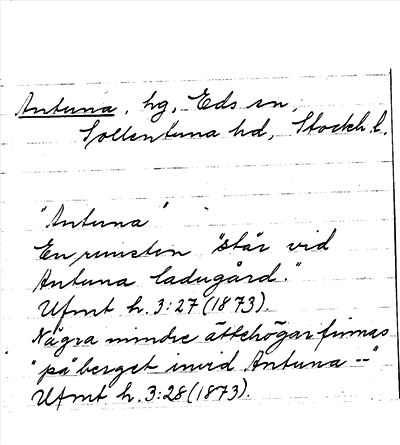 Antuna, hg, Eds sn,
Sollentuna hd, Stockh. l.
"Antuna"
En runsten "står vid
Antuna ladugård."
Ufmt h. 3:27 (1873).
Några mindre ättehögar finnas
"på berget invid Antuna --"
Ufmt h. 3:28 (1873).